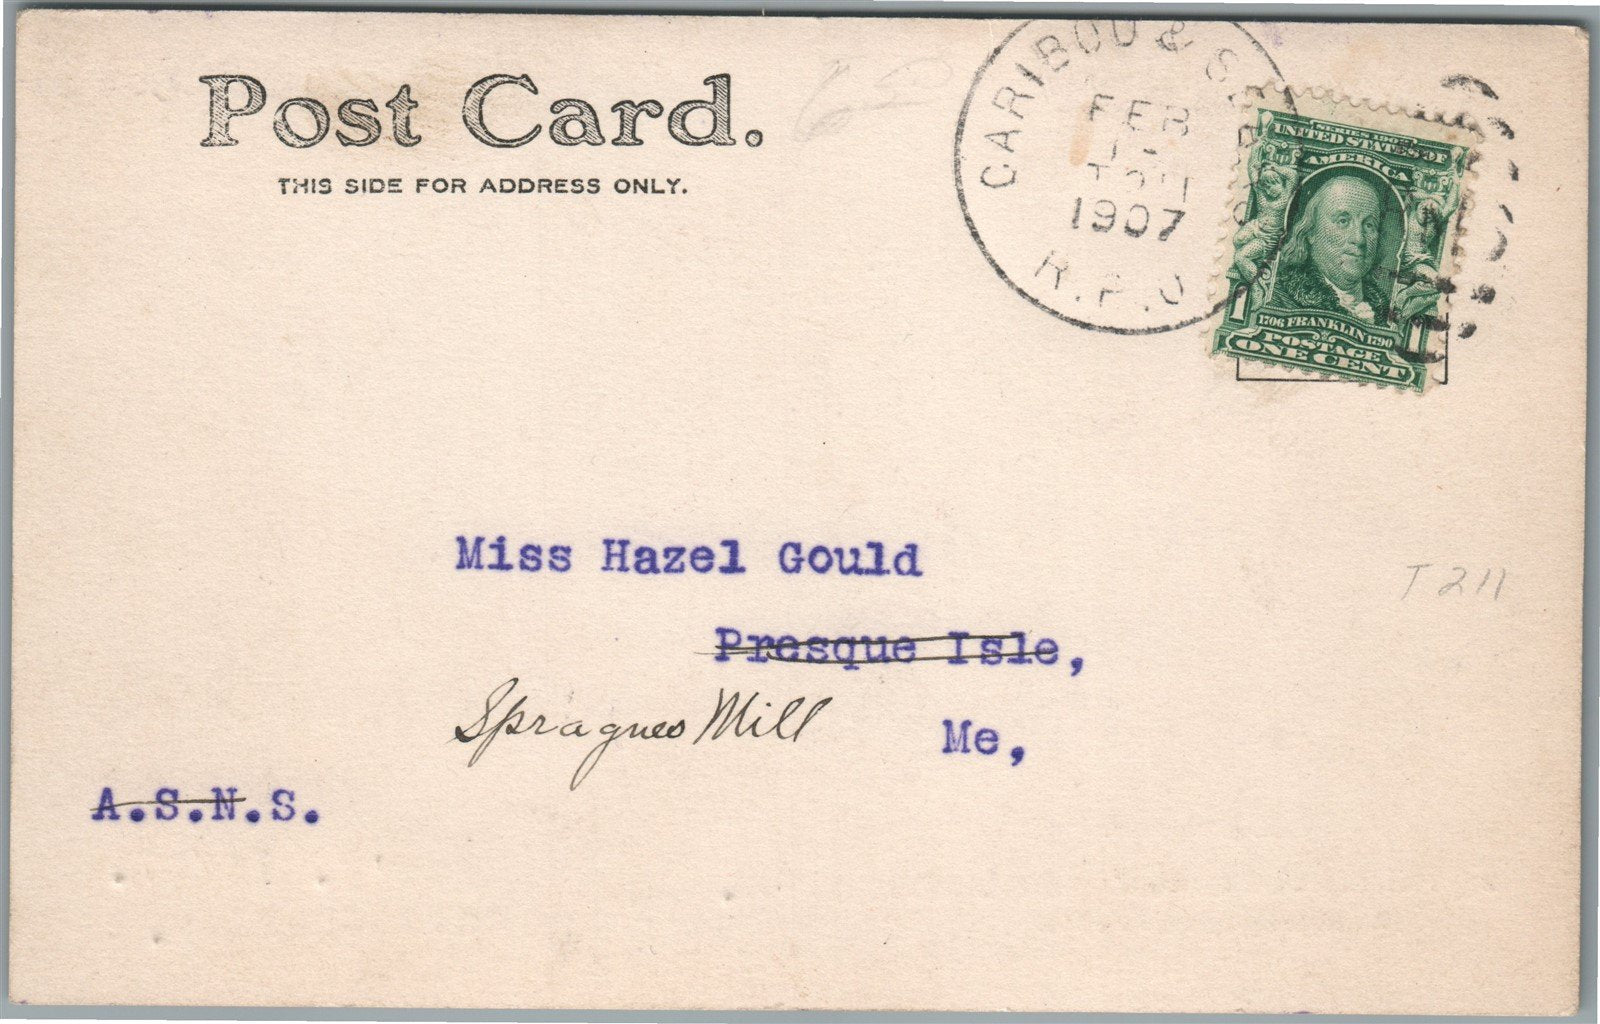 Post Card.
THIS SIDE FOR ADDRESS ONLY.
CARIBOU &
FEB
1907
R.P.O
SERIES 1902
UNITED STATES OF
AMERICA
1 1
1706 FRANKLIN 1790
POSTAGE
ONE CENT
Miss Hazel Gould
Presque Isle,
Spragues Mill Me,
A.S.N.S.
T 211